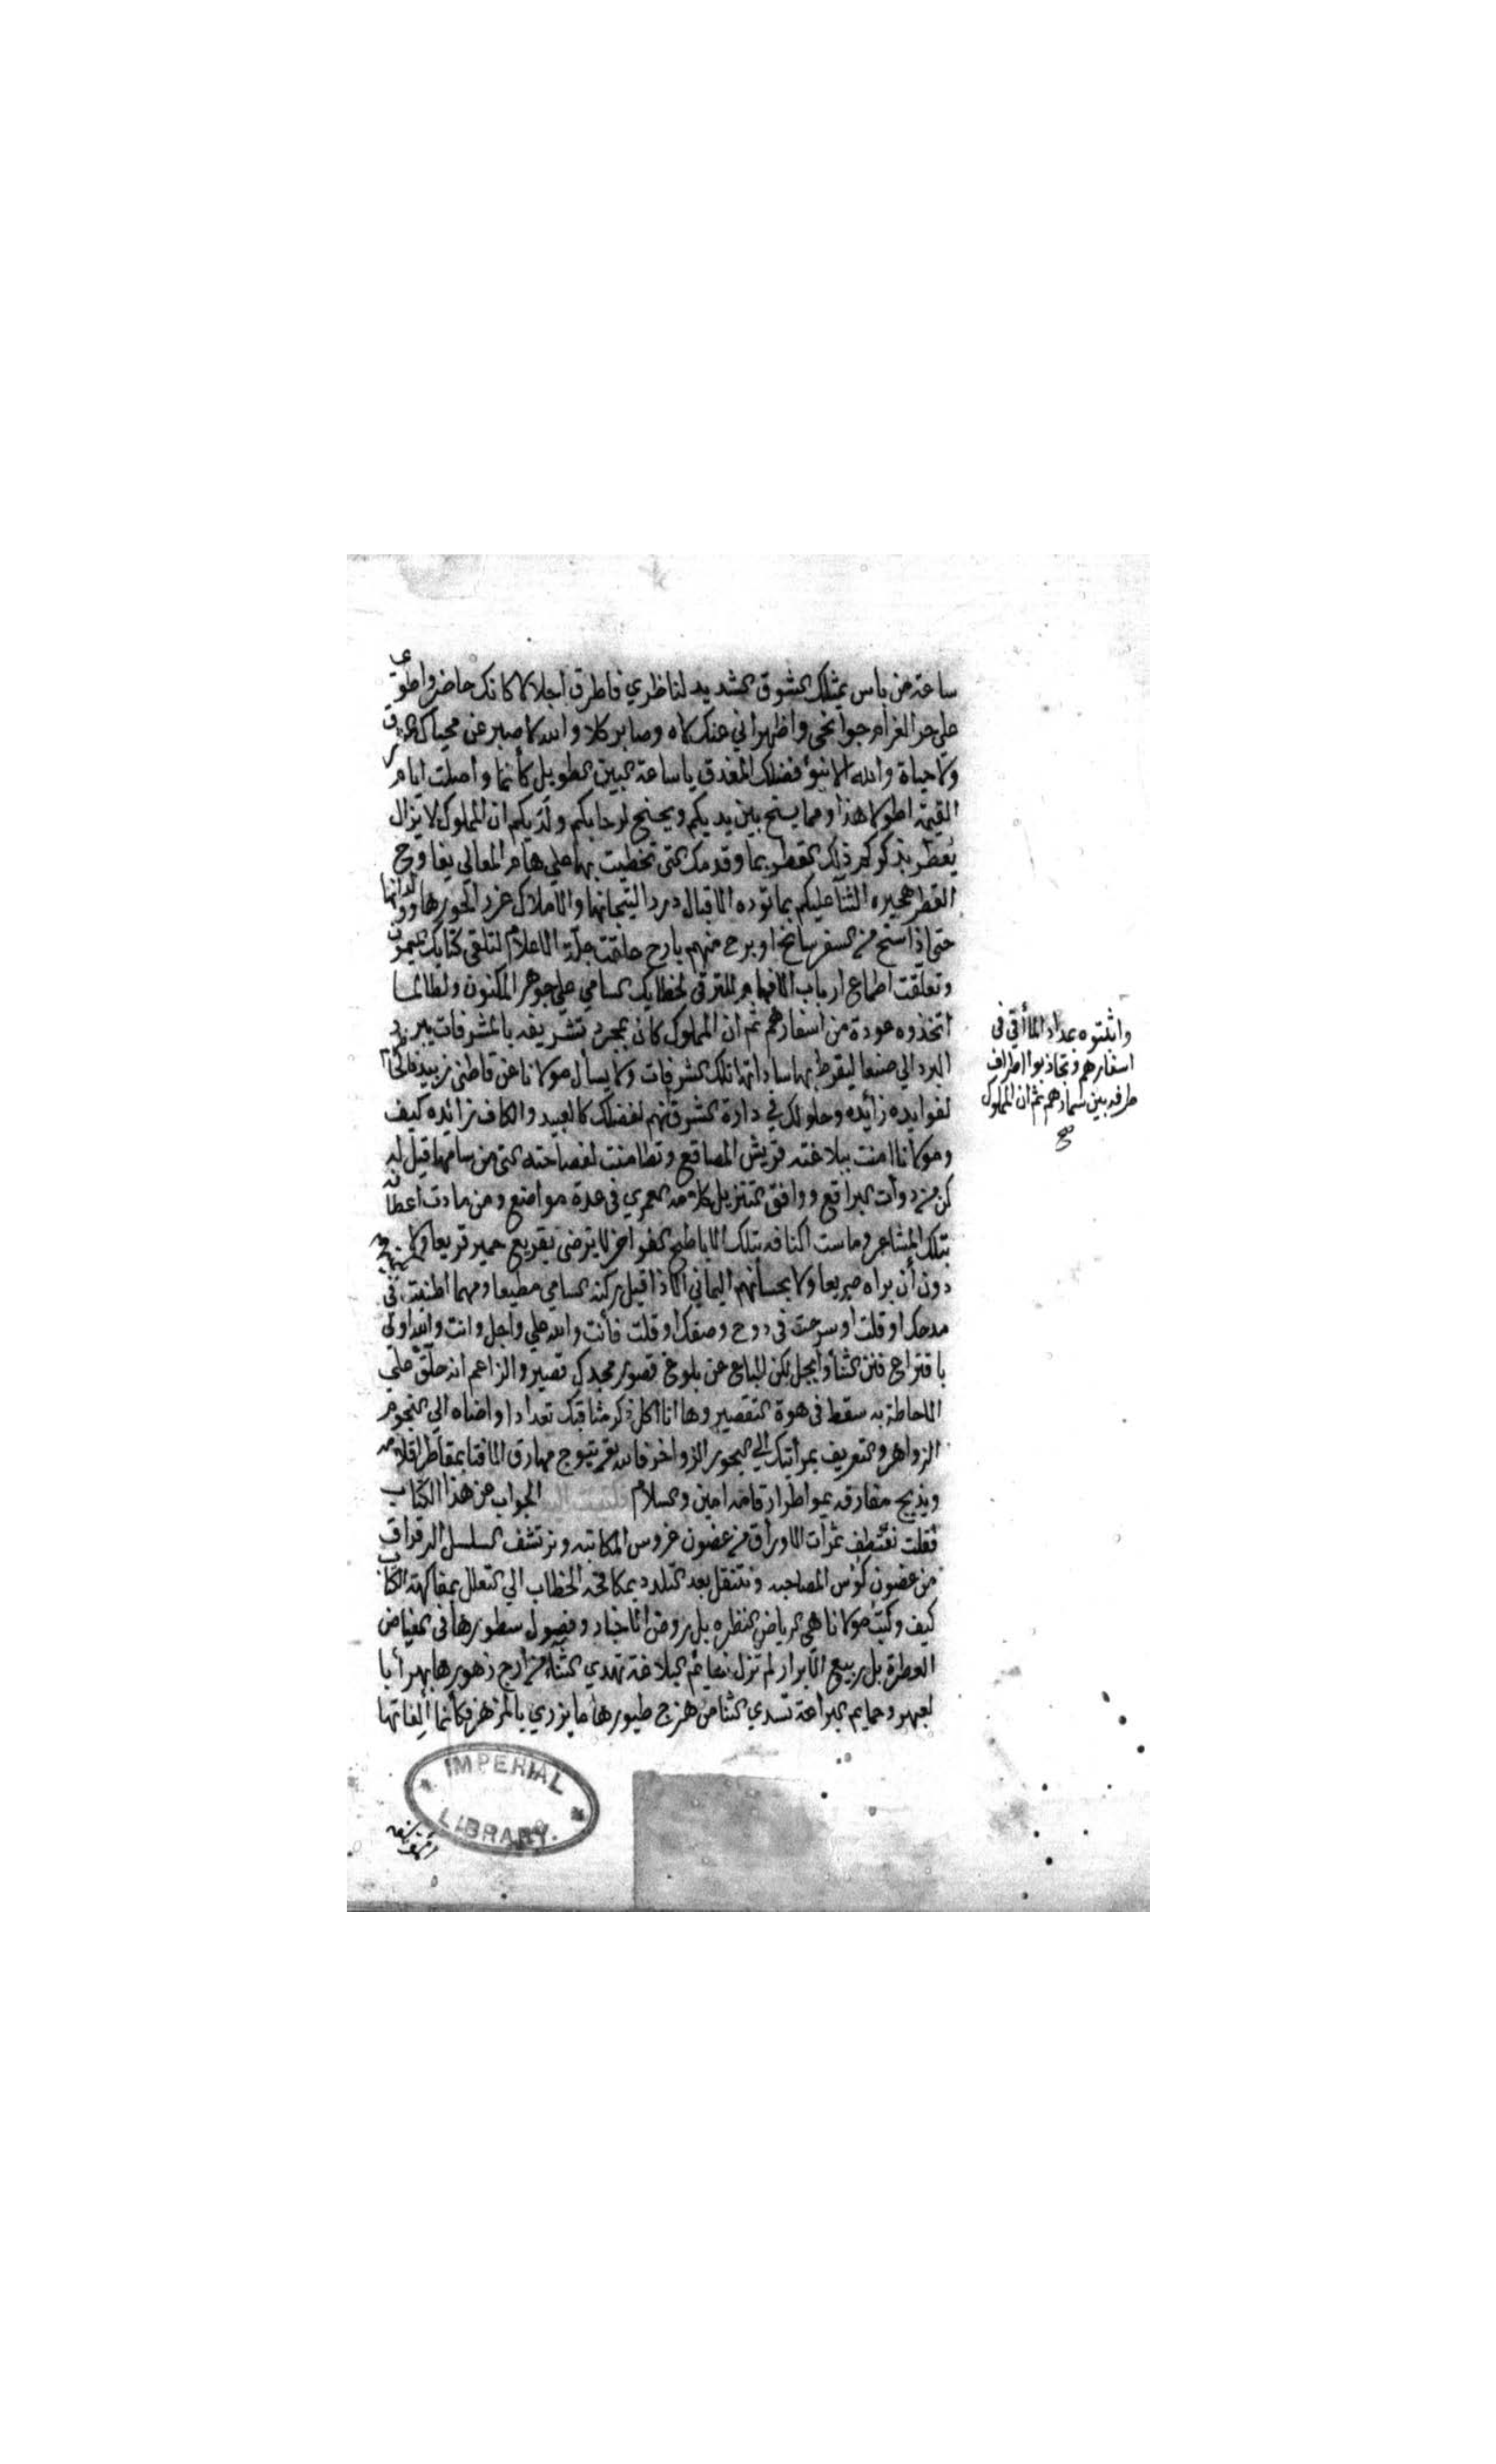 ساعة من باس يمثلك الشوق الشديد لناظري فاطرق اجلالا كانك حاضر واطوي
على حر الغرام جوانحي واظهر اني عنك لاه وصابر كلا والله لا صبر عن محياك
ولا حياة والله الا فضلك المغدق يا ساعة البين الطويل كأنما واصلت ايام
القيمة اطولا هذا ومما يسنح بين يديكم ويجنح لرحابكم ولديكم ان المملوك لا يزال
يعطر بذكركم ذلك القطر بما وقدمك التي تخطيت بها على هام المعالي
القطر الثنا عليكم بما توده الاقبال درر التيجانها والاملاك غرر
حتى اذا سنح من السفر سانح او برح منهم بارح حلقت جلة الاعلام لتلقى كتابك الميمون
وتعلقت اطماع ارباب الافهام للترقي لخطابك السامي على جوهر المكنون ولطالما
اتخذوه عودة من اسفارهم ثم ان المملوك كان بمجرد تشريفه بالمشرفات
البرد الى صنعا ليقرط بها ساداتها تلك الشرفات ولا يسأل مولانا عن قاطني زبيد
لفوايده زائده وحلولك في دارة الشرق انهم لفضلك كالعبيد والكاف زائده كيف
ومولانا امنت ببلاغته قريش المصاقع وتطامنت لفصاحته التي من سامها قيل له
كن من ذوات البراقع ووافق التنزيل كلامه العمري في عدة مواضع ومن مادت اعطافه
بتلك المشاعر وماست اكنافه بتلك الاباطح الفواخر لا يرضى بقريع حمير قريعا ولا
دون أن يراه صريعا ولا بحسانهم اليماني الا اذا قبل ركنه السامي مطيعا ومهما اطنبت في
مدحك او قلت او سرحت في دوح وصفك او قلت فأنت والله على واجل وانت والله اولى
باقتراع فنن الثنا وابجل لكن الباع عن بلوغ قصور مجدك قصير والزاعم انه حلق على
الاحاطة به سقط في هوة التقصير وها انا اكل ذكر مناقبك تعدادا واضاه الى النجوم
الزواهر والتعريف بمرأتبك الى البحور الزواخر فالله يتوج مهارق الافتا بمقاطر اقلامه
ويذبح مفارقه بمواطر ارقامه امين والسلام الجواب عن هذا الكتاب
فقلت نقتطف ثمرات الاوراق من غصون غروس المكاتبه ونرتشف السلسل الرقراق
من غصون كؤس المصاحبه ونتنقل بعد التلذذ بمكافحة الخطاب الى التعلل بمفاكهة الكتاب
كيف وكتب مولانا هي الرياض النظره بل روض الاخبار وفصول سطورها في الغياض
العطرة بل ربيع الابرار لم تزل نعائم البلاغة تهدي الثنا من أرج زهورها
وحمايم البراعة تسدي الثنا من هزج طيورها ما يزري بالمزهر فكأنما ألفاتها
واثبتوه عداد المأقي في
اسفارهم وتجاذبوا اطراف
طرفه بين سمارهم ثم ان المملوك
صح
IMPERIAL
LIBRARY.